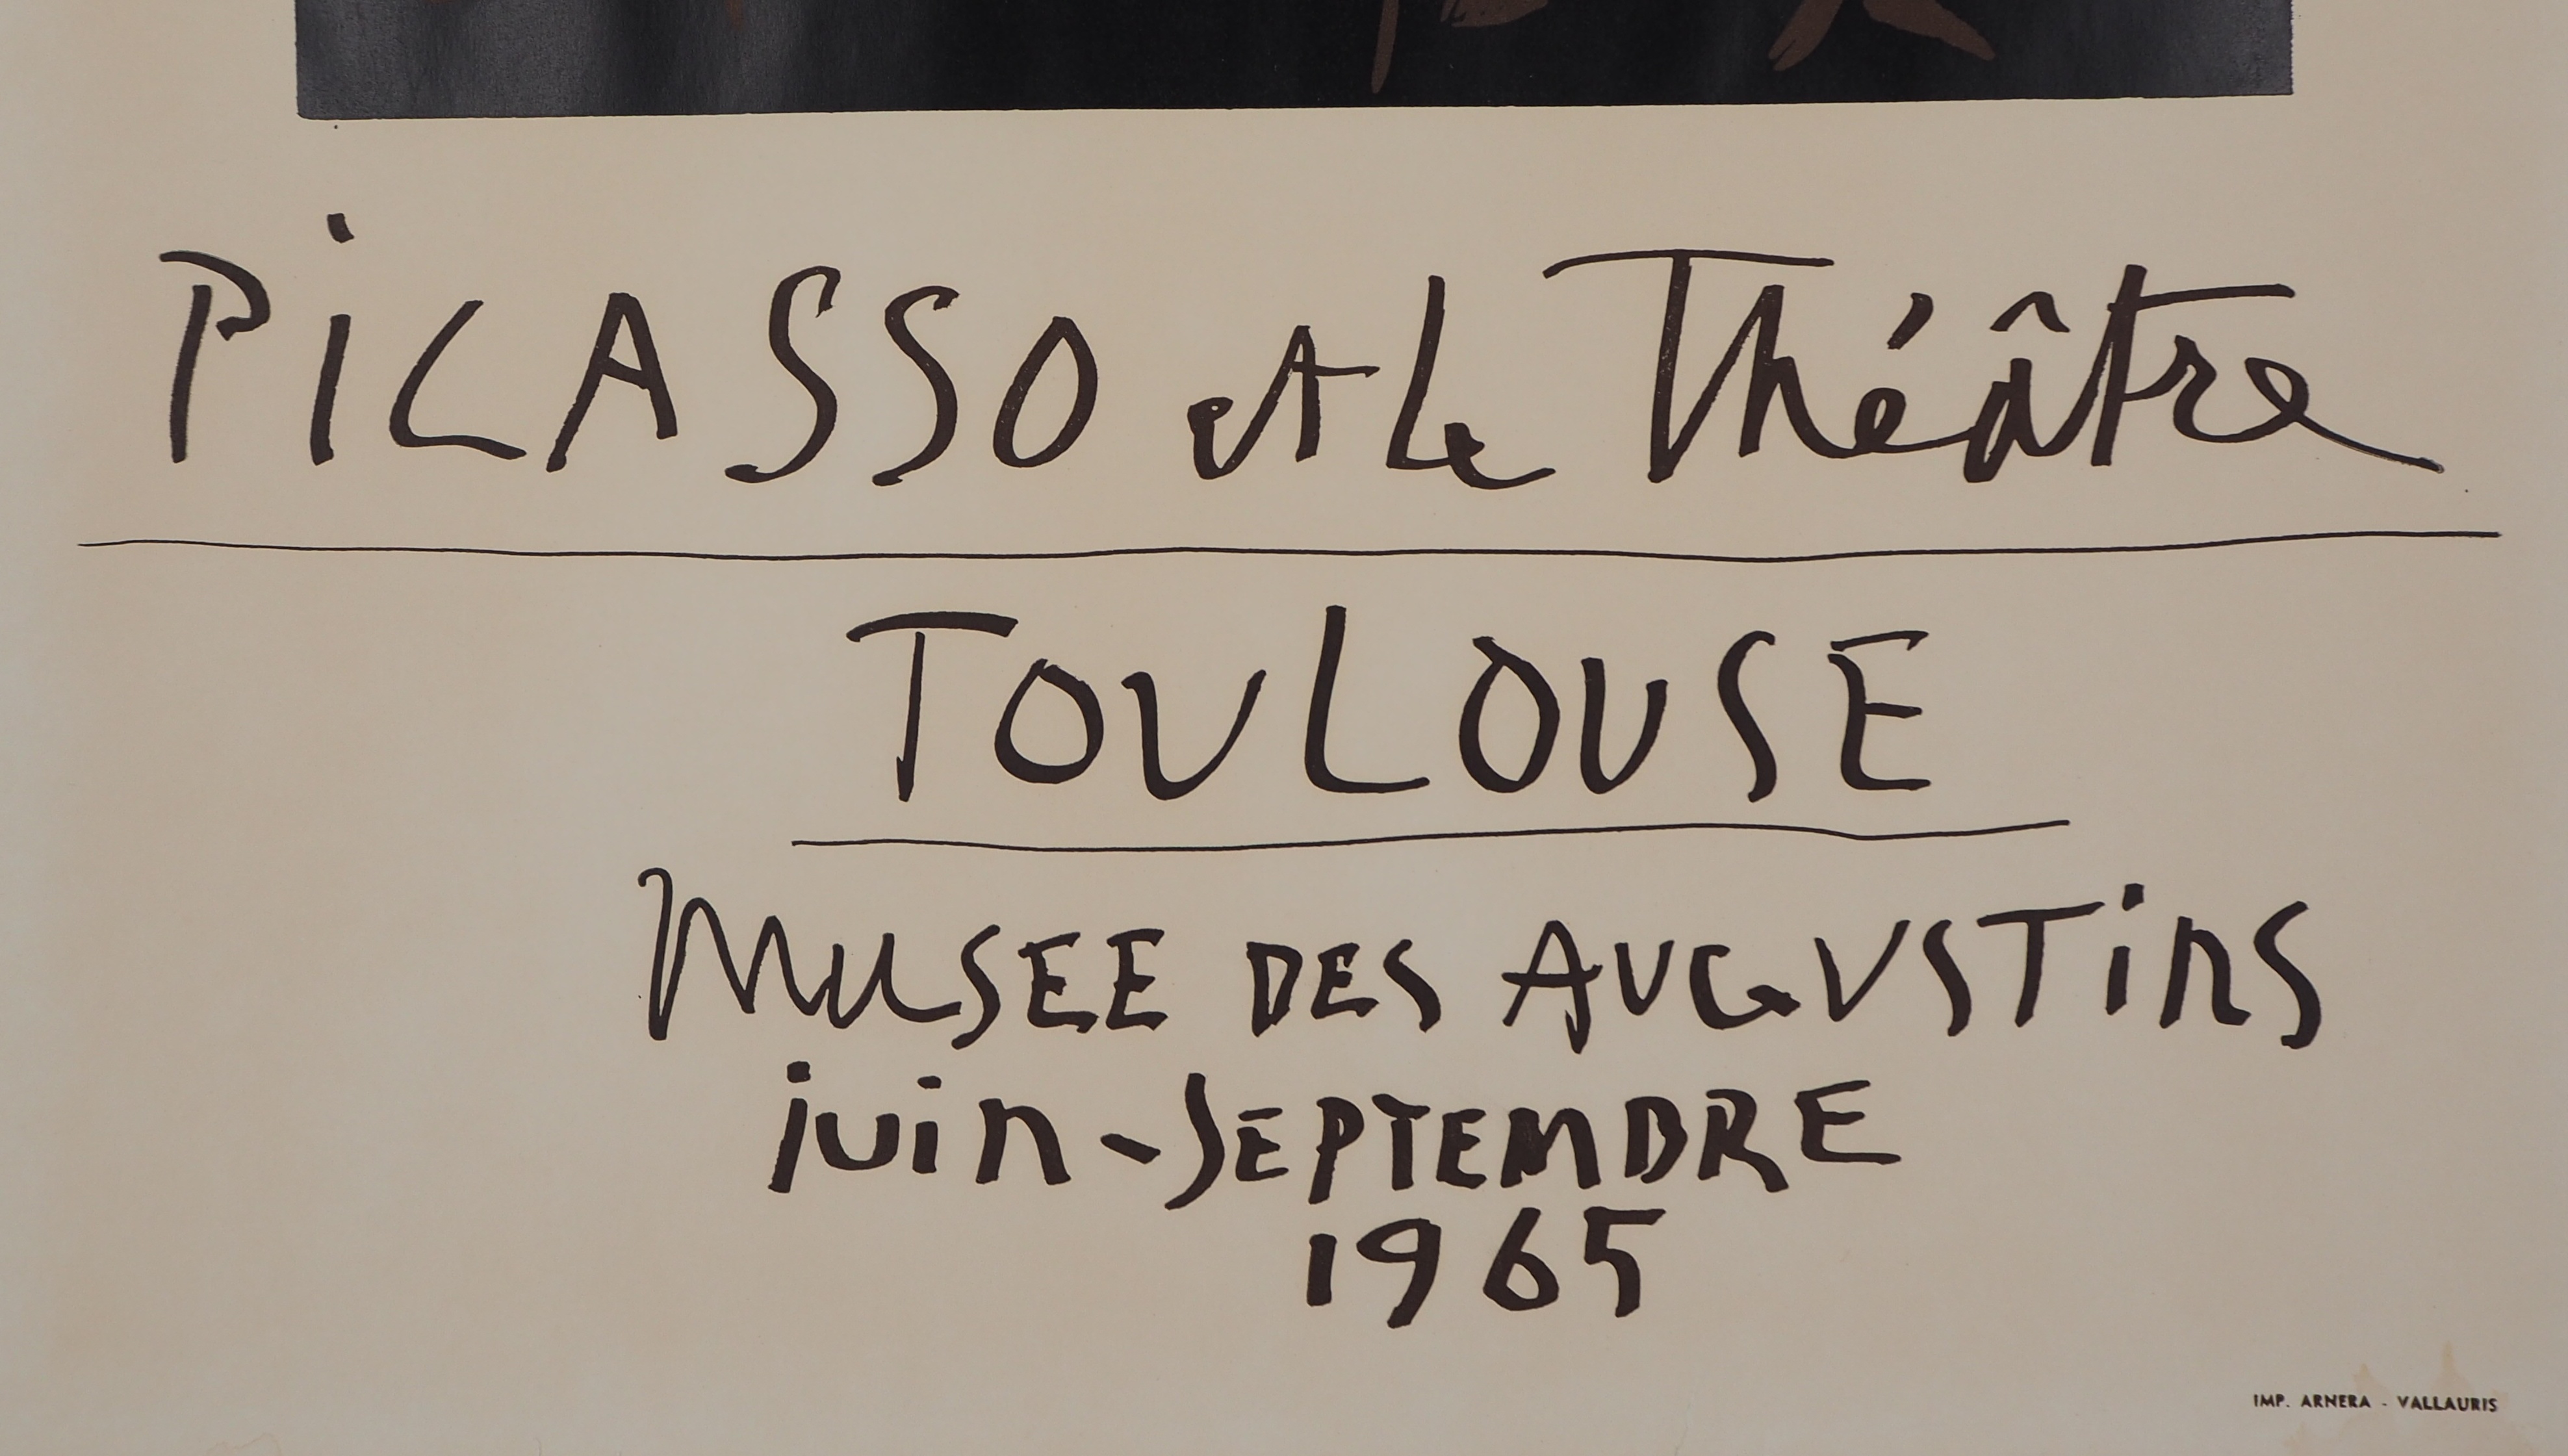 PiCASSO et Le Théâtre
TOULOUSE
MUSEE DES AUGUSTins
juin-SEPTEMBRE
1965
IMP. ARNERA - VALLAURIS